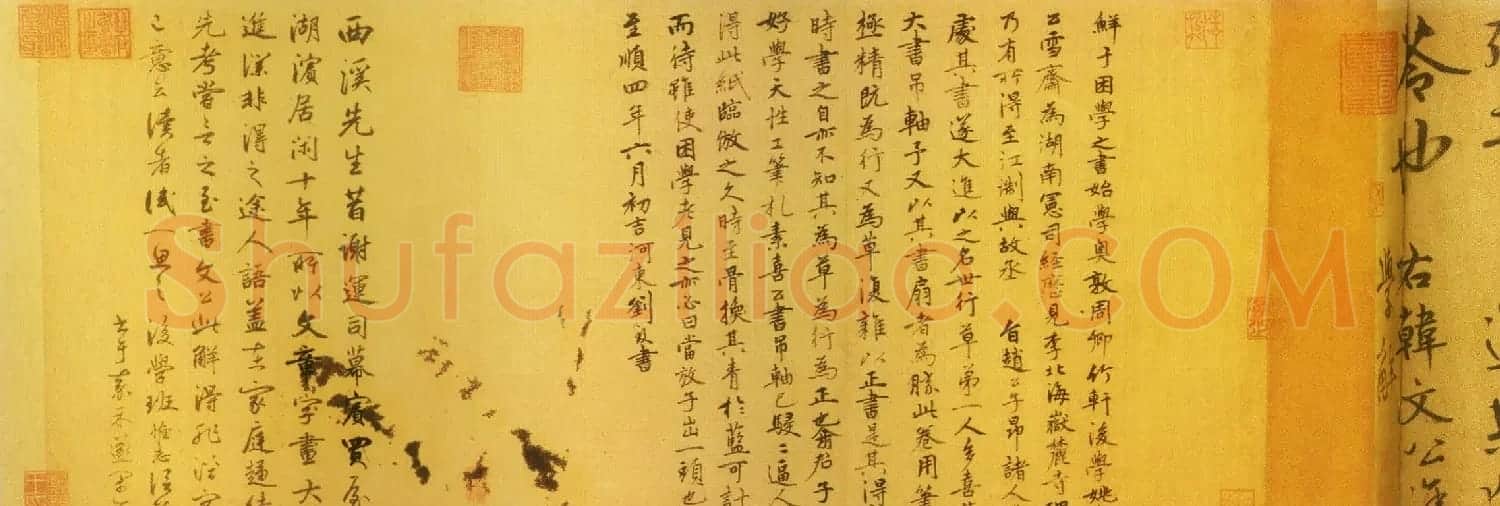 右韓文公進
學解
鮮于困學之書始學奧敦周卿竹軒後學姚
公雪齋為湖南憲司經歷見李北海嶽麓寺
乃有所得至江浙與故承旨趙公子昂諸人
處其書遂大進以之名世行草第一人多喜其
大書吊軸予又以其書扇者為勝此卷用筆
極精既為行又為草復雜以正書是其得
時書之自亦不知其為草為行為正也君子
好學天性工筆札素喜公書吊軸已駸〻逼人
得此紙臨倣之久時至骨換其青於藍可計
而待雖使困學老見之亦必曰當放子出一頭也
至順四年六月初吉河東劉致書
西溪先生昔謝運司幕賓買屋
湖濱居閑十年所以文章字畫大
進深非得之途人語蓋士家庭
先考嘗言之至書文公此解得
讀者試一思之後學班惟志
Shufaziliao.COM